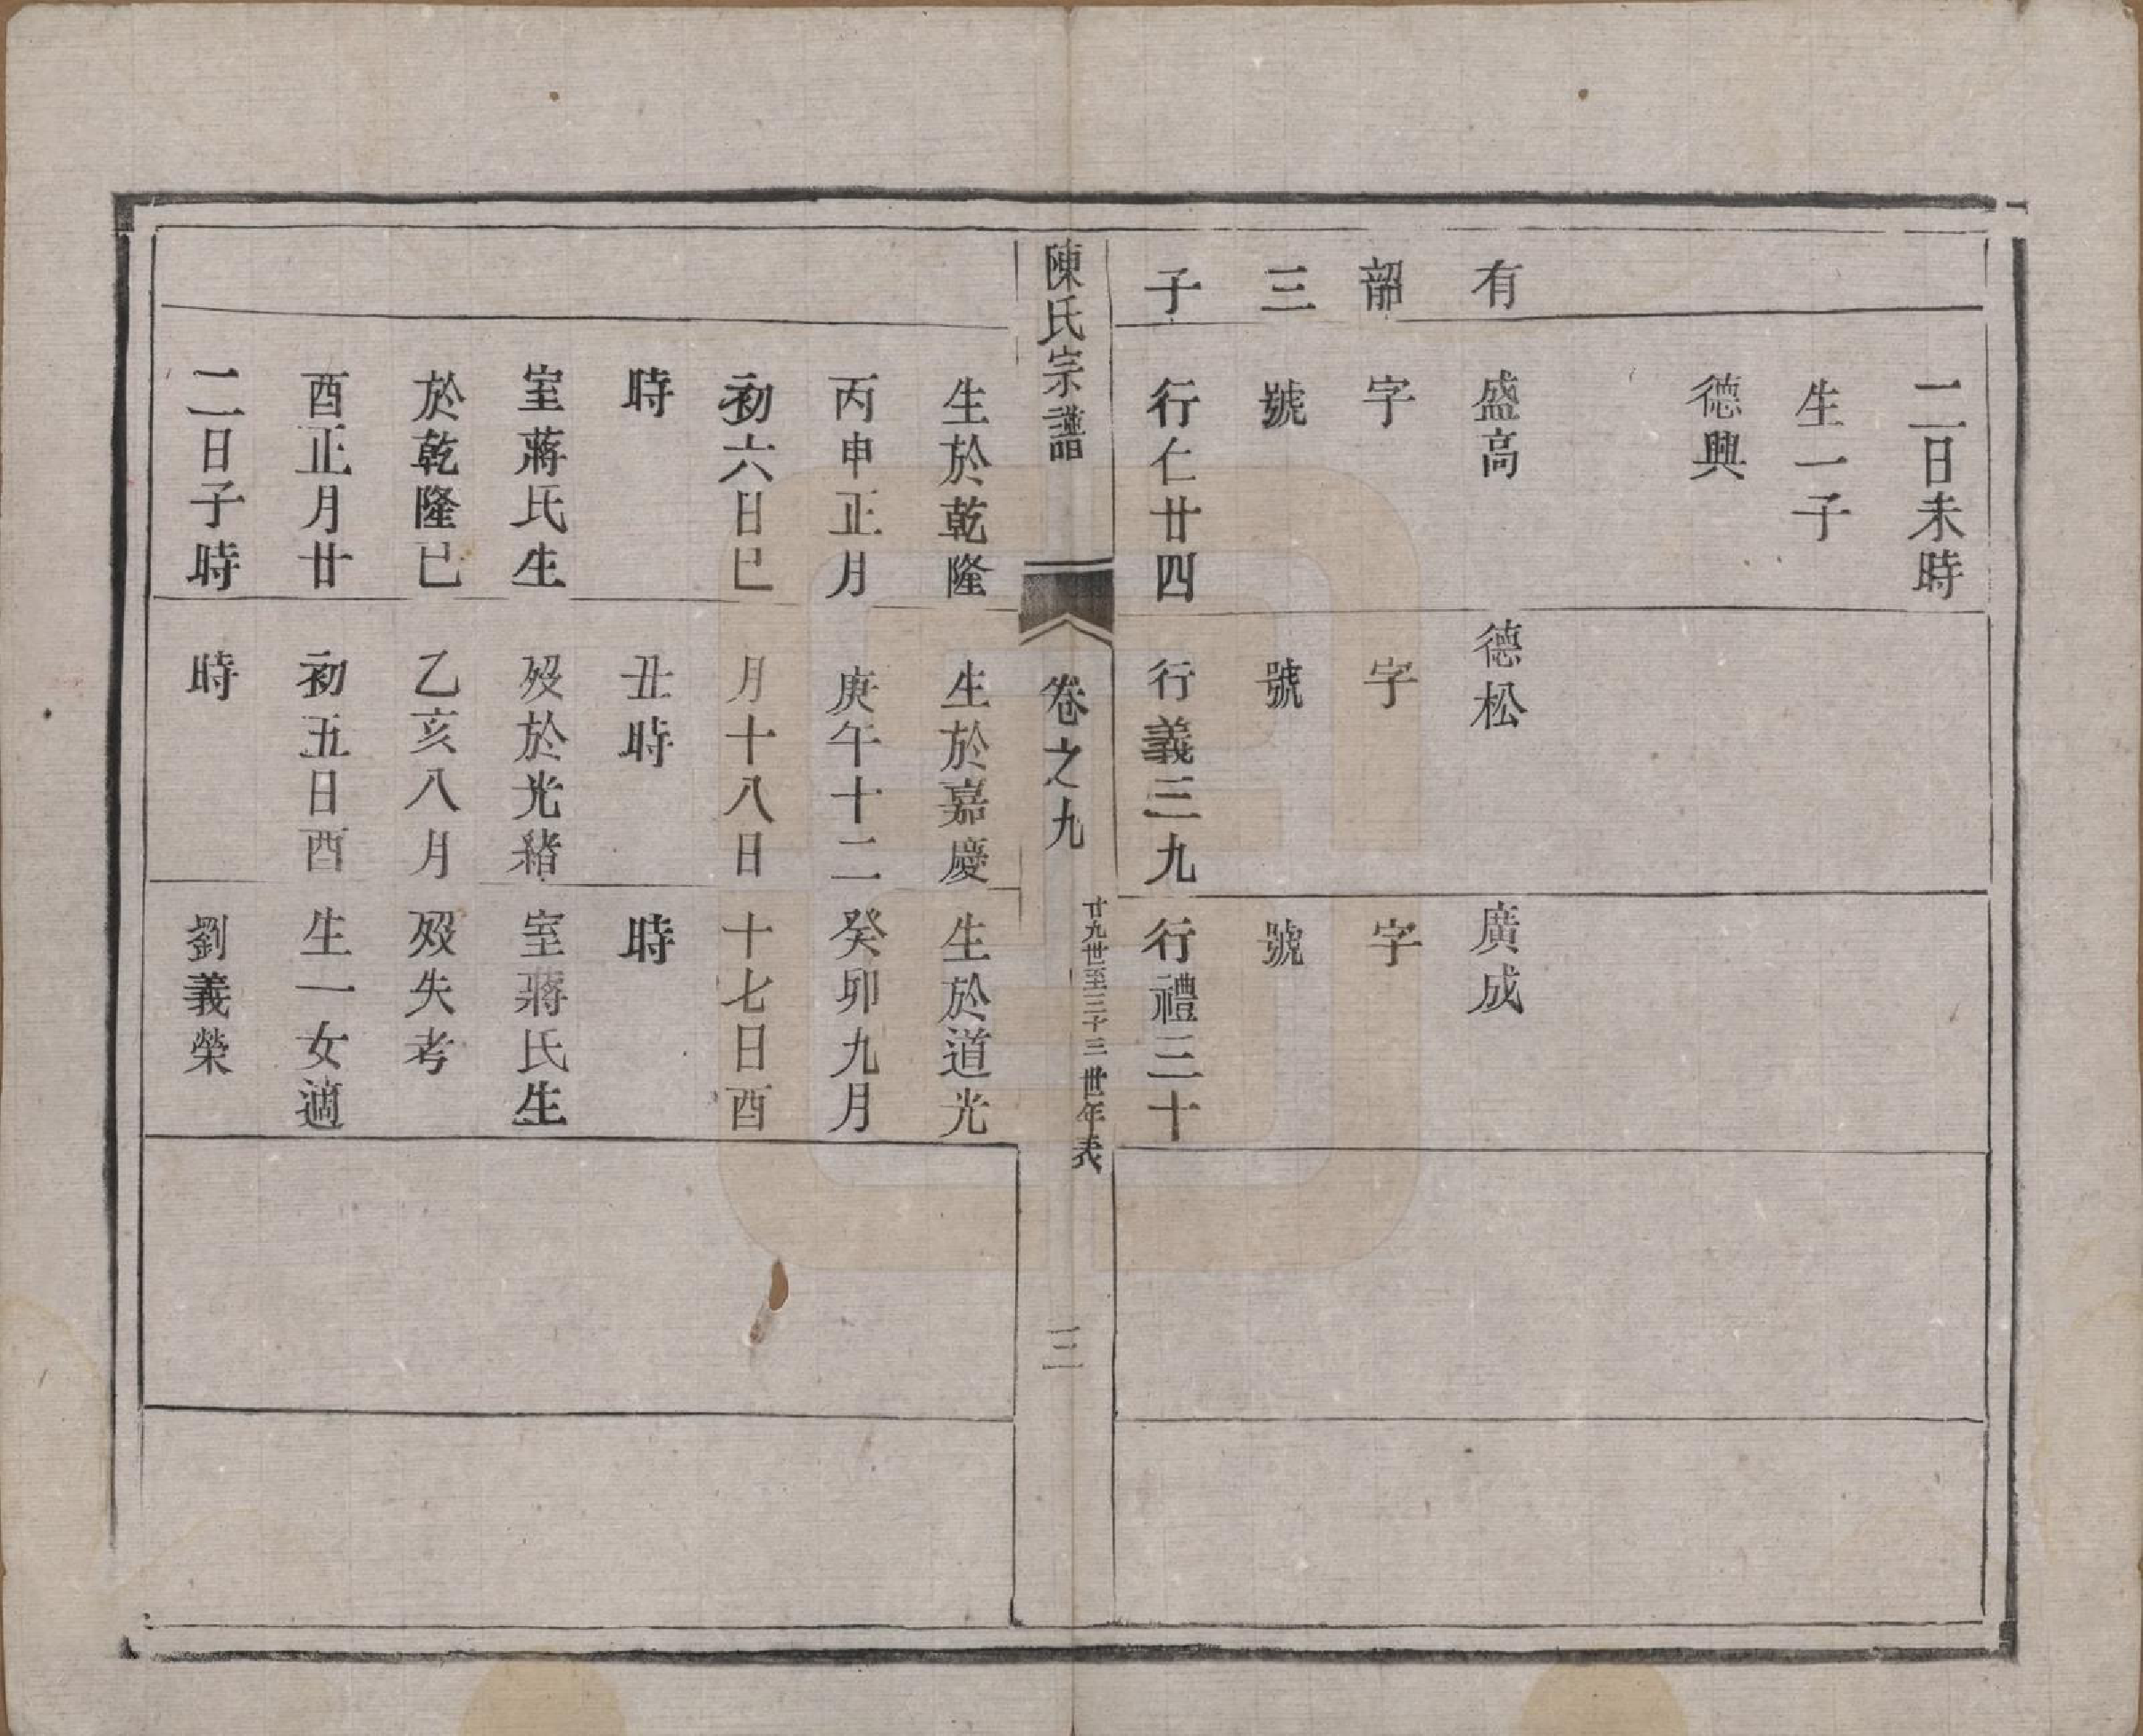 二日未時
生一子
德興
有
韶
三
子
盛高
字
號
行仁廿四
德松
字
號
行義三九
廣成
字
號
行禮三十
陳氏宗譜
卷之九
廿九世至三十三世年表
三
生於乾隆
丙申正月
初六日巳
時
室蔣氏生
於乾隆巳
酉正月廿
二日子時
生於嘉慶
庚午十二
月十八日
丑時
歿於光緒
乙亥八月
初五日酉
時
生於道光
癸卯九月
十七日酉
時
室蔣氏生
歿失考
生一女適
劉義榮